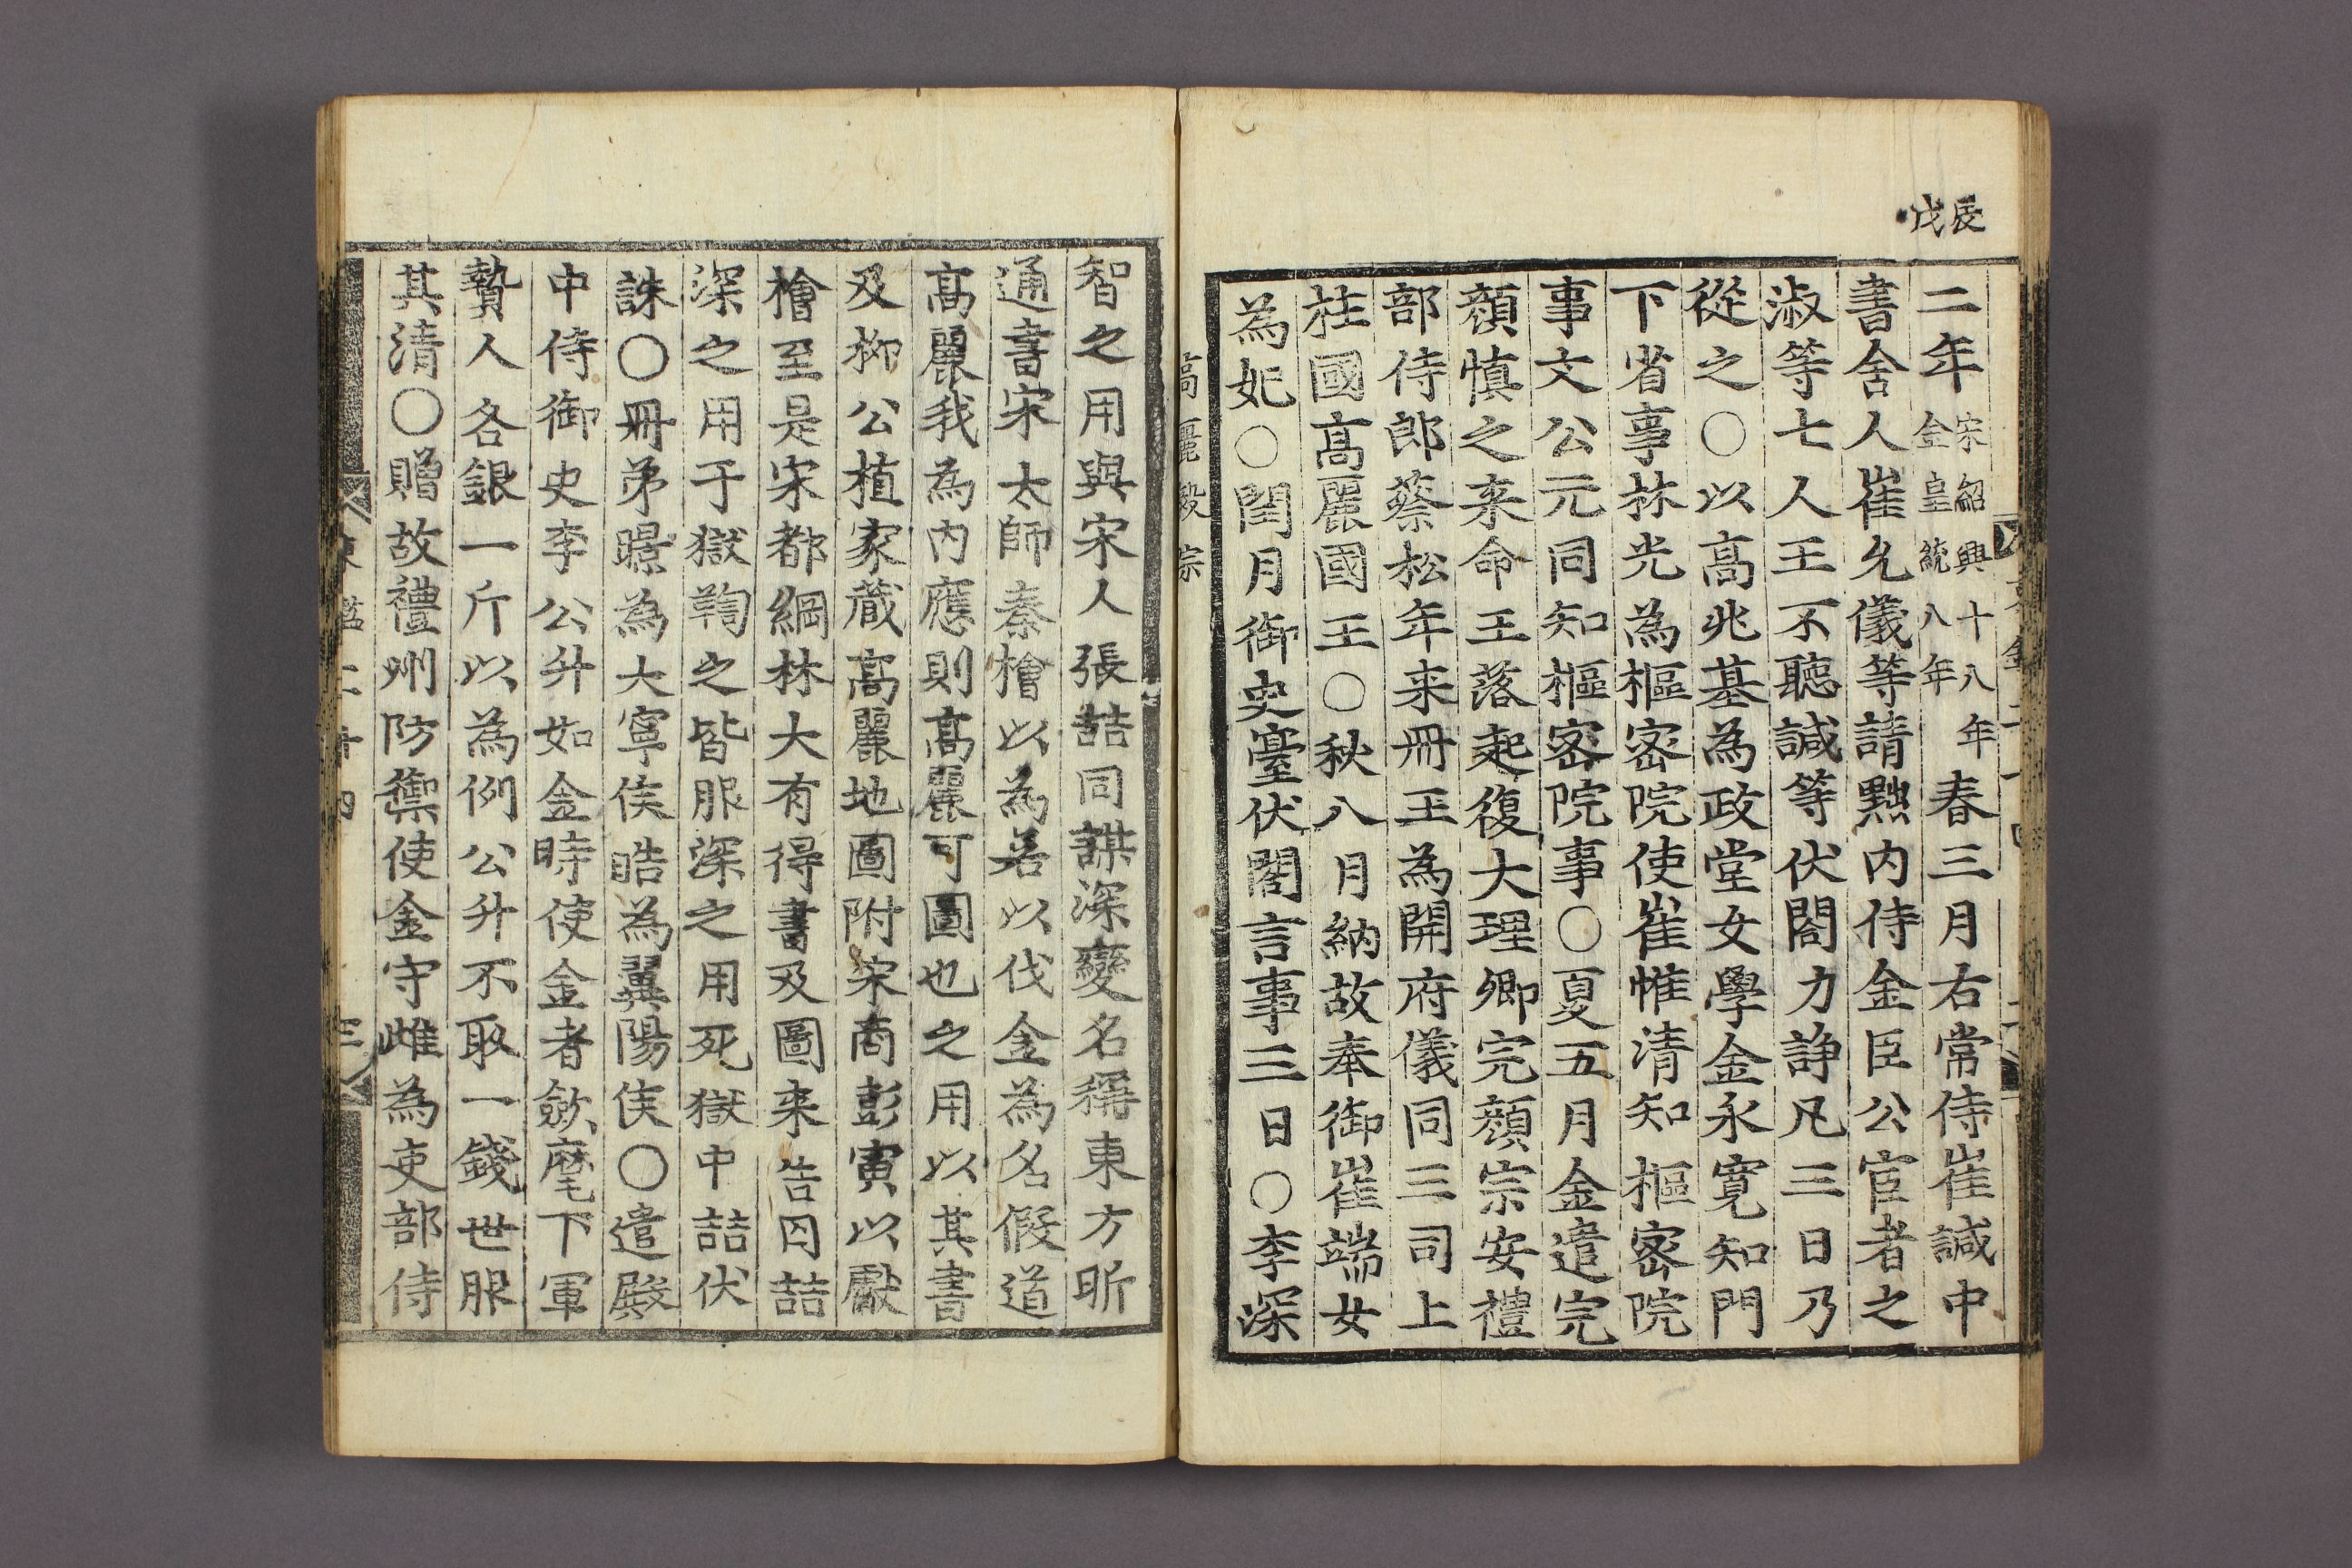 戊辰
二年 宋紹興十八年 金皇統八年 春三月右常侍崔諴中
書舍人崔允儀等請黜内侍金臣公宦者之
淑等七人王不聽諴等伏閤力諍凡三日乃
從之○以高兆基為政堂文學金永寛知門
下省事林光為樞密院使崔惟清知樞密院
事文公元同知樞密院事○夏五月金遣完
顔慎之来命王落起復大理卿完顔宗安禮
部侍郎蔡松年来冊王為開府儀同三司上
柱國高麗國王○秋八月納故奉御崔端女
為妃○閏月御史䑓伏閤言事三日○李深
高麗毅宗
智之用與宋人張喆同謀深變名稱東方昕
通書宋太師秦檜以為若以伐金為名假道
高麗我為内應則高麗可圖也之用以其書
及柳公植家蔵高麗地圖附宋商彭寅以獻
檜至是宋都綱林大有得書及圖来告囚喆
深之用于獄鞫之皆服深之用死獄中喆伏
誅○冊弟暻為大寧侯晧為翼陽侯○遣殿
中侍御史李公升如金時使金者歛麾下軍
贄人各銀一斤以為例公升不取一錢世服
其清○贈故禮州防禦使金守雌為吏部侍
東鑑二十四 三